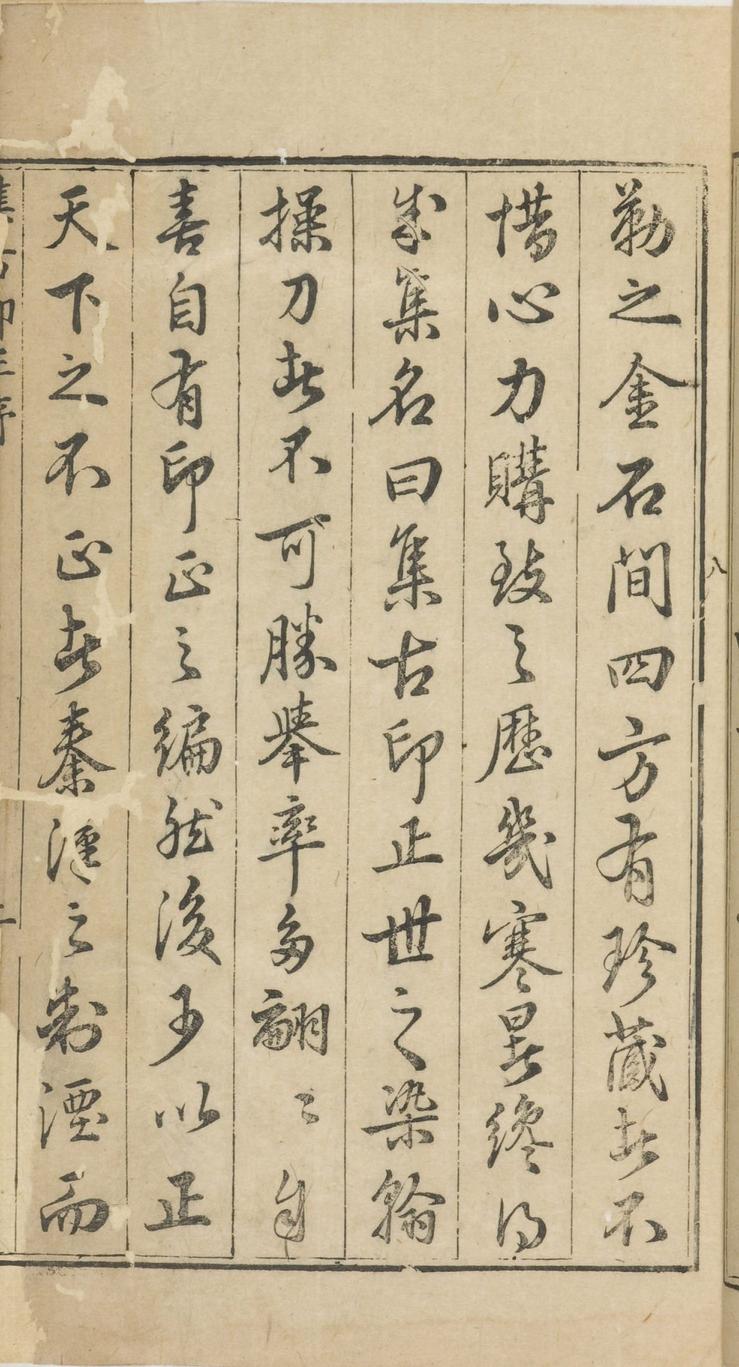 勒之金石間四方有珍藏者不
惜心力購致之歷幾寒暑纔得
成集名曰集古印正世之染翰
操刀者不可勝舉率多翩〻自
喜自有印正之編然後可以正
天下之不正者秦漢之制湮而
集古印正序
二